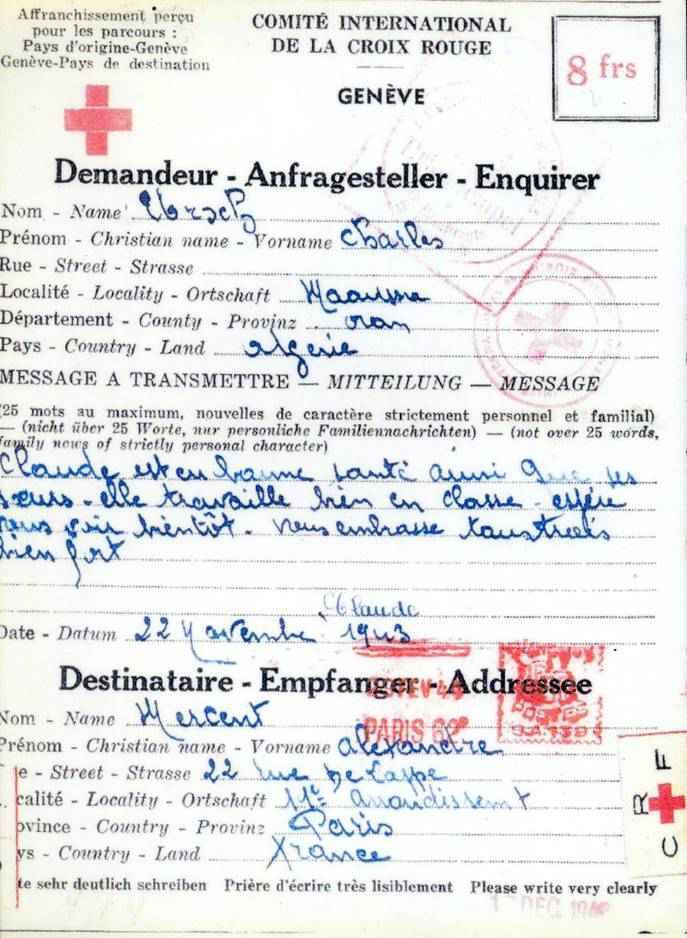 Affranchissement perçu
pour les parcours :
Pays d'origine-Genève
Genève-Pays de destination
COMITÉ INTERNATIONAL
DE LA CROIX ROUGE
GENÈVE
8 frs
Demandeur - Anfragesteller - Enquirer
Nom - Name
Prénom - Christian name - Vorname Charles
Rue - Street - Strasse
Localité - Locality - Ortschaft
Département - County - Provinz oran
Pays - Country - Land algérie
MESSAGE A TRANSMETTRE — MITTEILUNG — MESSAGE
(25 mots au maximum, nouvelles de caractère strictement personnel et familial)
— (nicht über 25 Worte, nur personliche Familiennachrichten) — (not over 25 words,
family news of strictly personal character)
Claude est en bonne santé ainsi que ses
sœurs - elle travaille bien en classe - espère
vous voir bientôt. vous embrasse tous
bien fort
Claude
Date - Datum 22 Novembre 1943
Destinataire - Empfanger - Addressee
PARIS
POSTES
Nom - Name Mercent
Prénom - Christian name - Vorname alexandre
e - Street - Strasse 22 rue de Lappe
calité - Locality - Ortschaft 11e arrondissemt
ovince - Country - Provinz Paris
ys - Country - Land France
C R F
te sehr deutlich schreiben Prière d'écrire très lisiblement Please write very clearly
DEC